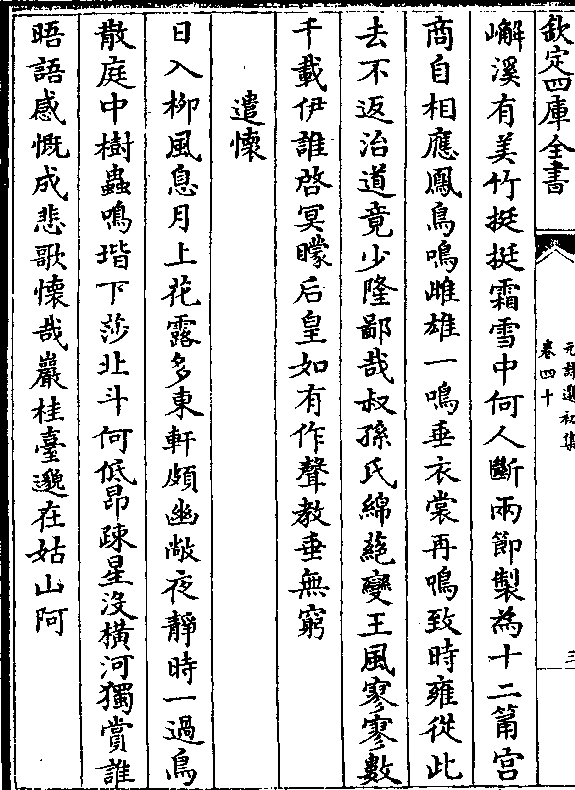 欽定四庫全書
元詩選初集
卷四十
三
嶰溪有美竹挺挺霜雪中何人斷兩節製為十二筩宮
商自相應鳳鳥鳴雌雄一鳴垂衣裳再鳴致時雍從此
去不返治道竟少隆鄙哉叔孫氏綿蕝變王風寥寥數
千載伊誰啓冥矇后皇如有作聲教垂無窮
遣懷
日入栁風息月上花露多東軒頗幽敞夜靜時一過鳥
散庭中樹蟲鳴堦下莎北斗何低昂疎星沒橫河獨賞誰
晤語感慨成悲歌懷哉巖桂臺邈在姑山阿